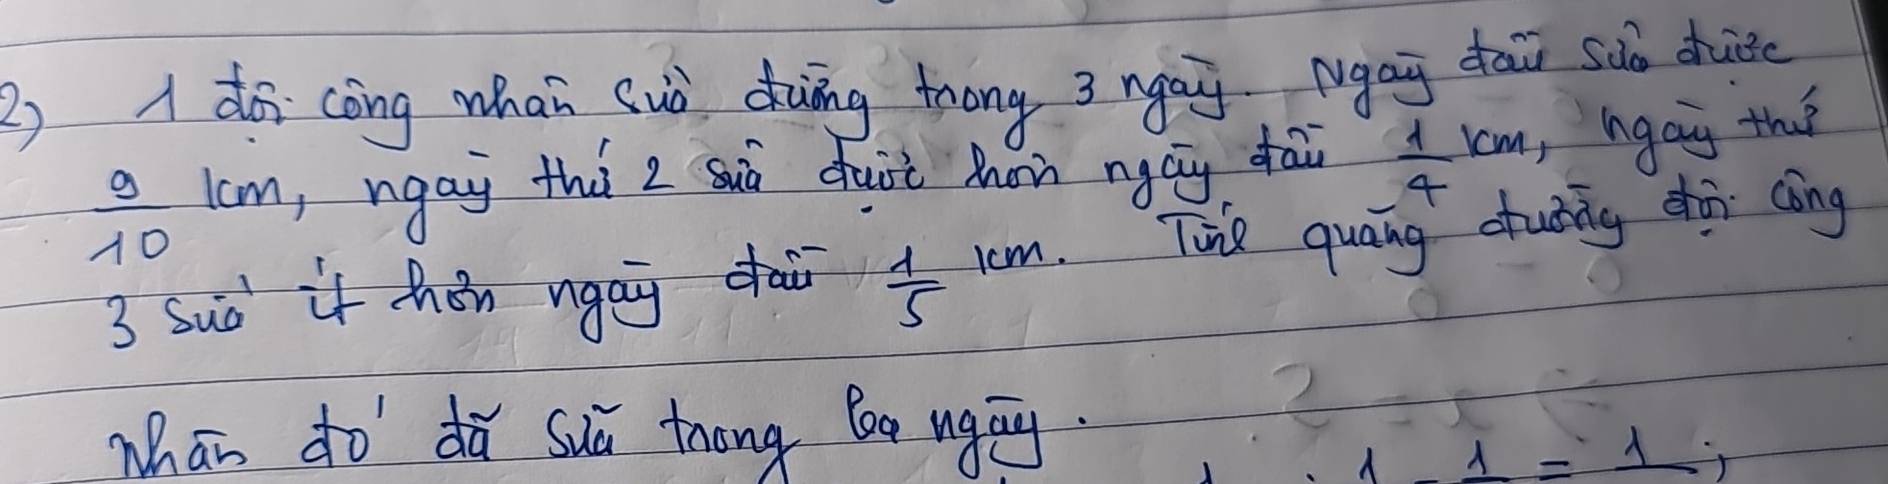 2) 1 đội công nhân sửa đường trong 3 ngày. Ngày đầu sửa được
9/10 km, ngày thứ 2 sửa được hơn ngày đầu 1/4 km, ngày thứ
3 sửa ít hơn ngày đầu 1/5 km. Tính quãng đường đội công
nhân đó đã sửa trong ba ngày.
1 - 1 = 1 ;